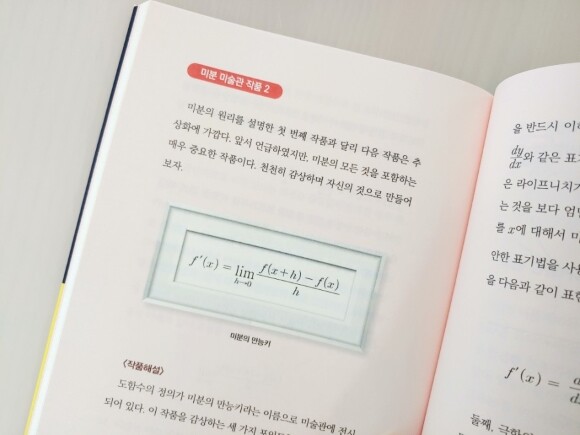 미분 미술관 작품 2
미분의 원리를 설명한 첫 번째 작품과 달리 다음 작품은 추
상화에 가깝다. 앞서 언급하였지만, 미분의 모든 것을 포함하는
매우 중요한 작품이다. 천천히 감상하며 자신의 것으로 만들어
보자.
f′(x) = lim h→0 f(x+h) − f(x) / h
미분의 만능키
<작품해설>
도함수의 정의가 미분의 만능키라는 이름으로 미술관에 전시
되어 있다. 이 작품을 감상하는 세 가지
을 반드시
dy/dx와 같은
은 라이프니치
는 것을 보다
를 x에 대해서
안한 표기법을
을 다음과 같이
f′(x) =
둘째,